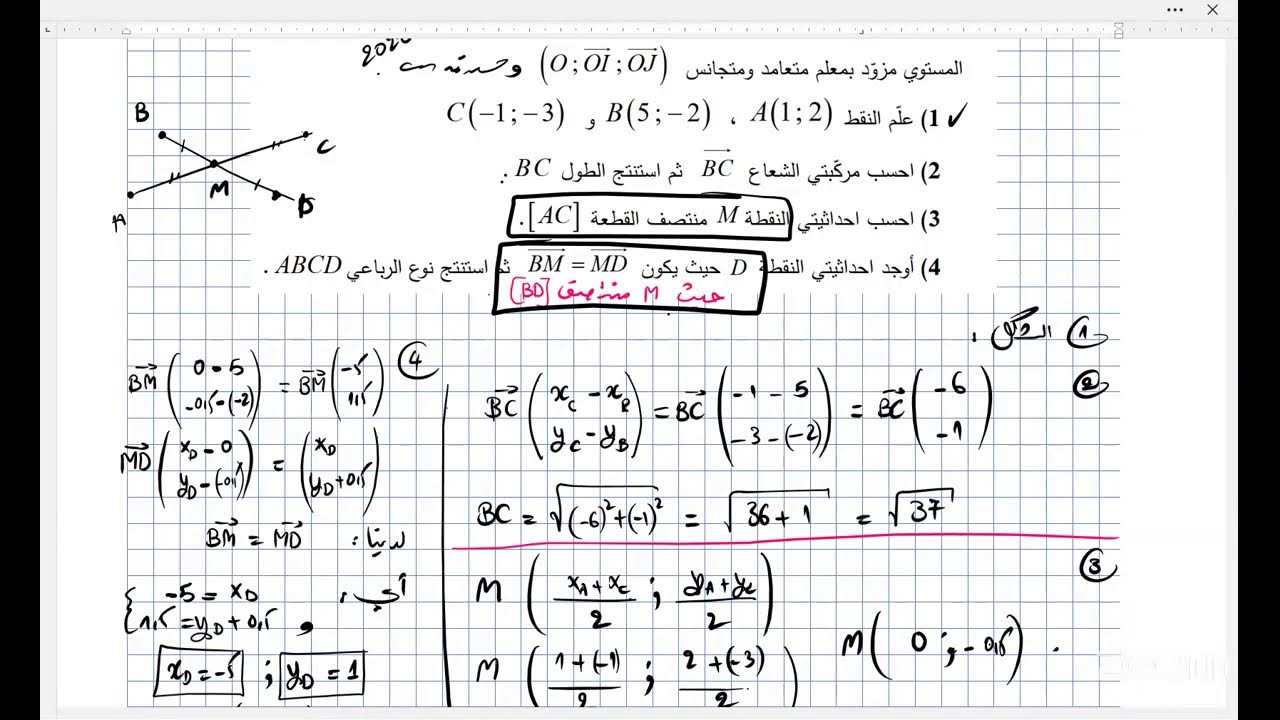 المستوي مزوّد بمعلم متعامد ومتجانس (O ; OI ; OJ)
1) علّم النقط A(1;2) ، B(5;−2) و C(−1;−3)
2) احسب مركّبتي الشعاع BC ثم استنتج الطول BC .
3) احسب احداثيتي النقطة M منتصف القطعة [AC].
4) أوجد احداثيتي النقطة D حيث يكون BM = MD ثم استنتج نوع الرباعي ABCD .
حيث M منتصف [BD]
B
C
M
D
A
① الشكل .
②
BC (x_C − x_B ; y_C − y_B) = BC (−1 − 5 ; −3 − (−2)) = BC (−6 ; −1)
BC = √((−6)² + (−1)²) = √(36 + 1) = √37
③
M ( (x_A + x_C)/2 ; (y_A + y_C)/2 )
M ( (1 + (−1))/2 ; (2 + (−3))/2 )
M ( 0 ; −0,5 ) .
④
BM (0 − 5 ; −0,5 − (−2)) = BM (−5 ; 1,5)
MD (x_D − 0 ; y_D − (−0,5)) = (x_D ; y_D + 0,5)
لدينا : BM = MD
أي :
{ −5 = x_D
{ 1,5 = y_D + 0,5 و
x_D = −5 ; y_D = 1